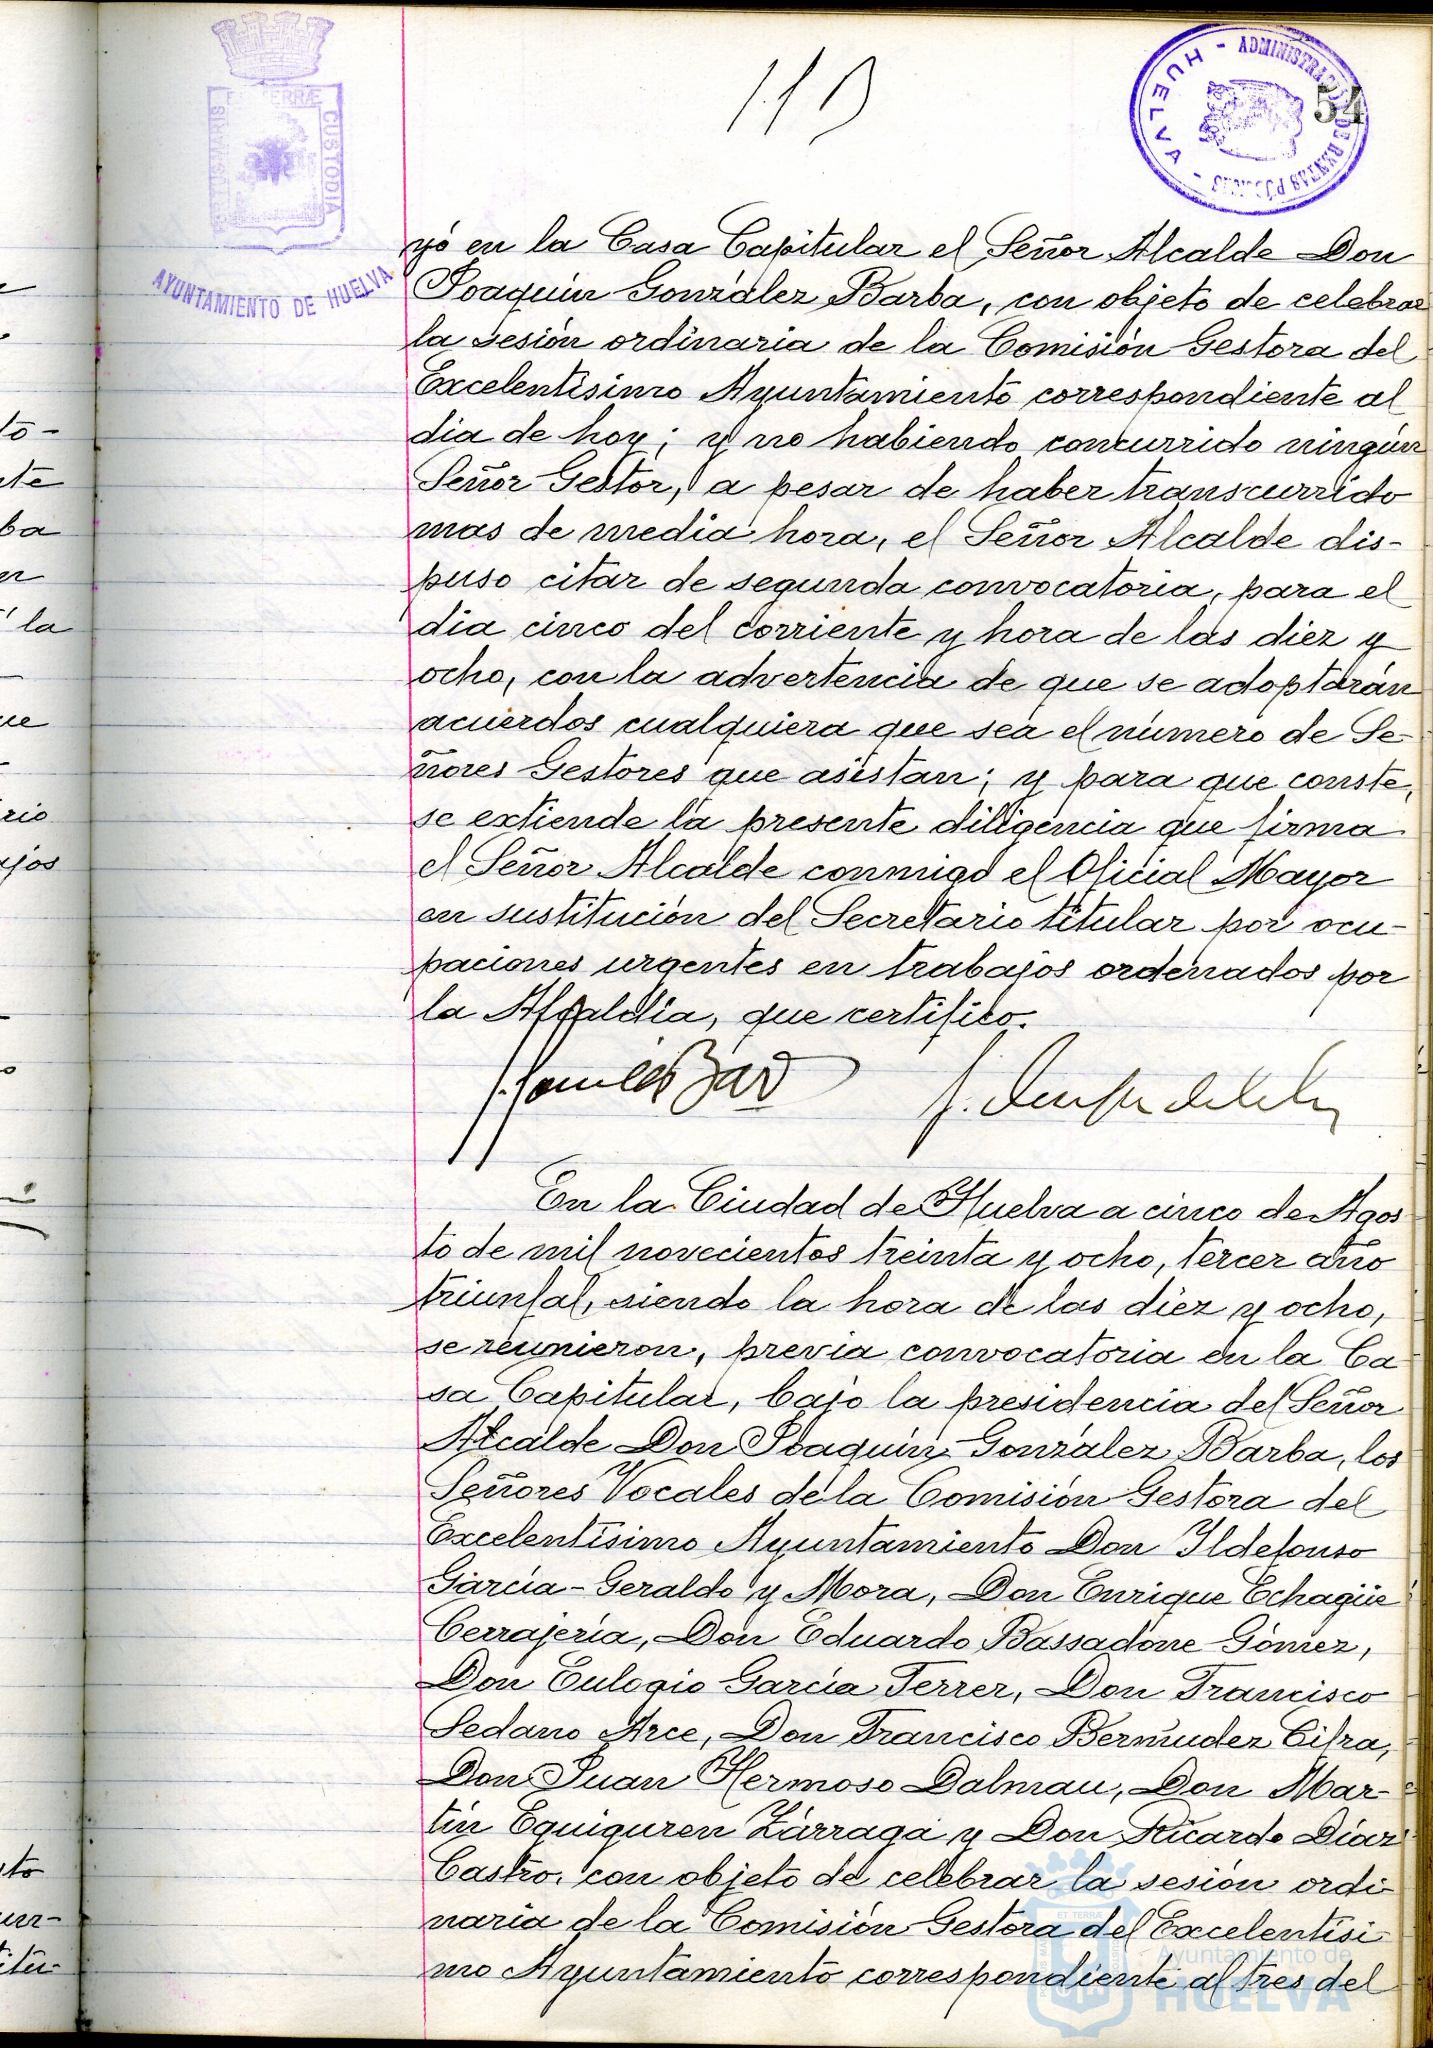 113
54
ADMINISTRACIÓN DE RENTAS PÚBLICAS - HUELVA -
PORTUS MARIS ET TERRÆ CUSTODIA
AYUNTAMIENTO DE HUELVA
yó en la Casa Capitular el Señor Alcalde Don
Joaquín González Barba, con objeto de celebrar
la sesión ordinaria de la Comisión Gestora del
Excelentísimo Ayuntamiento correspondiente al
dia de hoy; y no habiendo concurrido ningún
Señor Gestor, a pesar de haber transcurrido
mas de media hora, el Señor Alcalde dis-
puso citar de segunda convocatoria, para el
dia cinco del corriente y hora de las diez y
ocho, con la advertencia de que se adoptarán
acuerdos cualquiera que sea el número de Se-
ñores Gestores que asistan; y para que conste,
se extiende la presente diligencia que firma
el Señor Alcalde conmigo el Oficial Mayor
en sustitución del Secretario titular por ocu-
paciones urgentes en trabajos ordenados por
la Alcaldía, que certifico.
En la Ciudad de Huelva a cinco de Agos
to de mil novecientos treinta y ocho, tercer año
triunfal, siendo la hora de las diez y ocho,
se reunieron, previa convocatoria en la Ca
sa Capitular, bajo la presidencia del Señor
Alcalde Don Joaquín González Barba, los
Señores Vocales de la Comisión Gestora del
Excelentísimo Ayuntamiento Don Ildefonso
García-Geraldo y Mora, Don Enrique Echagüe
Cerrajería, Don Eduardo Bassadone Gómez,
Don Eulogio García Ferrer, Don Francisco
Sedano Arce, Don Francisco Bermudez Cifra,
Don Juan Hermoso Dalmau, Don Mar-
tín Eguiguren Zárraga y Don Ricardo Díaz
Castro, con objeto de celebrar la sesión ordi-
naria de la Comisión Gestora del Excelentísi-
mo Ayuntamiento correspondiente al tres del
Ayuntamiento de
HUELVA